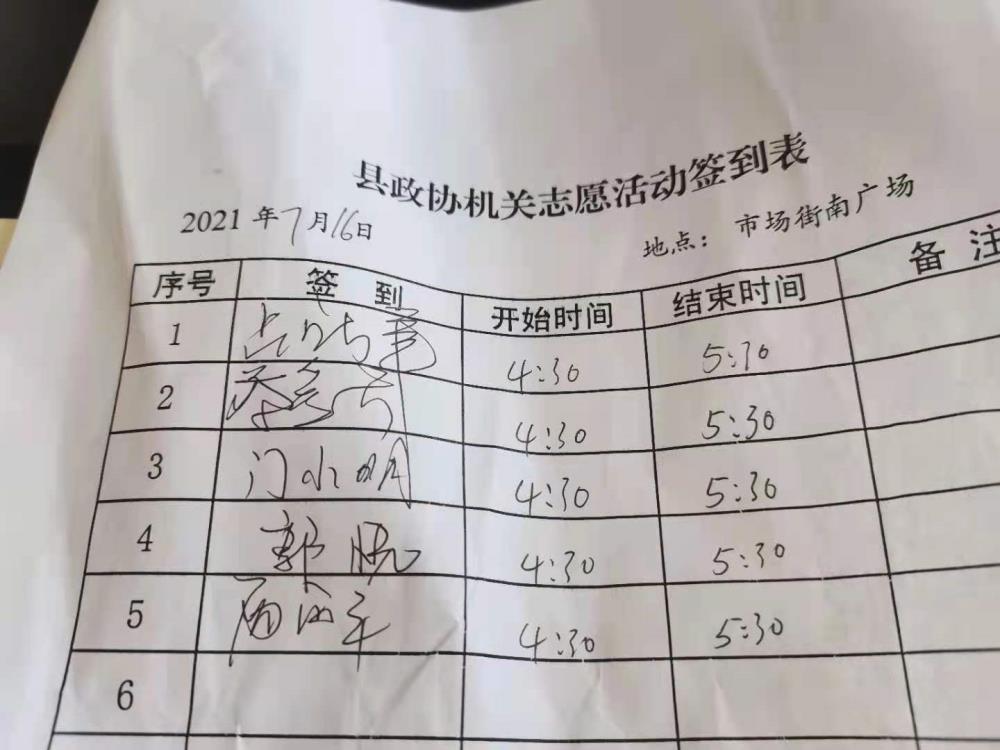 县政协机关志愿活动签到表
2021 年 7 月 16 日
地点: 市场街南广场
序号 签 到 开始时间 结束时间 备 注
1 4:30 5:30
2 4:30 5:30
3 门水明 4:30 5:30
4 郭晓 4:30 5:30
5 4:30 5:30
6